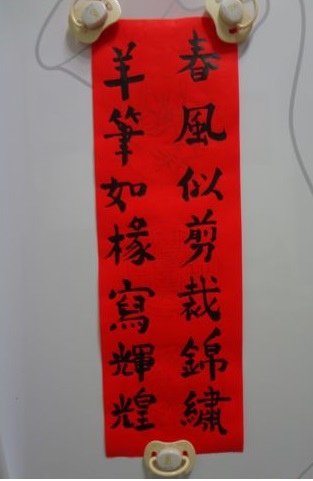 春風似剪裁錦繡
羊筆如椽寫輝煌